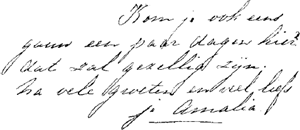 Kom je ook eens
gauw een paar dagen hier?
dat zal gezellig zijn.
na vele groeten en veel liefs
je Amalia